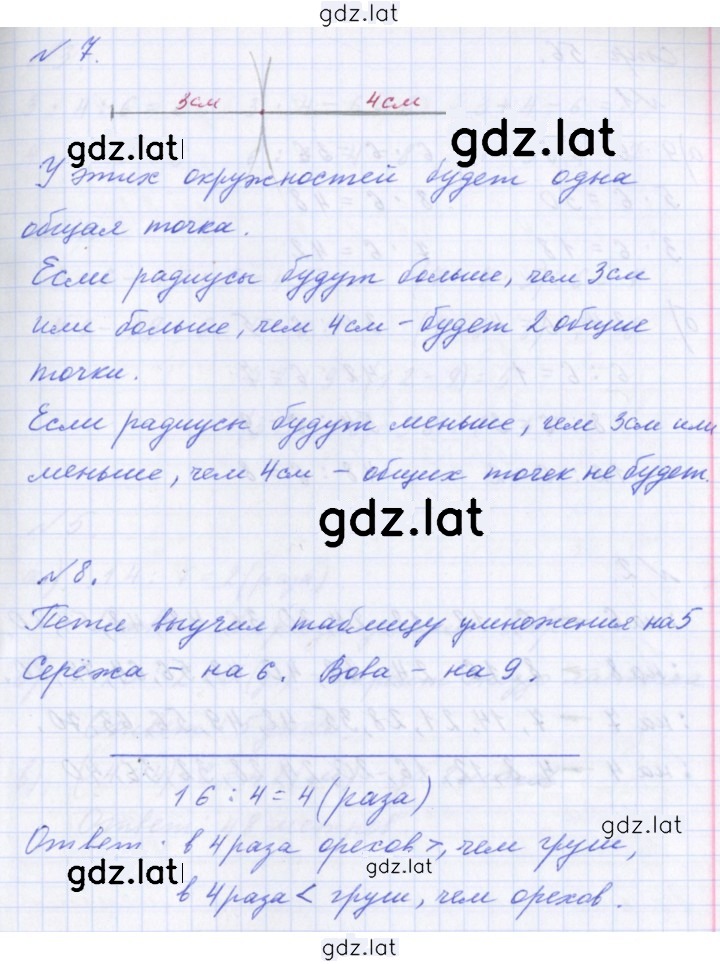 gdz.lat
№ 7.
3см 4см
gdz.lat gdz.lat
У этих окружностей будет одна
общая точка.
Если радиусы будут больше, чем 3см
или больше, чем 4см – будет 2 общие
точки.
Если радиусы будут меньше, чем 3см или
меньше, чем 4см – общих точек не будет.
gdz.lat
№ 8.
Петя выучил таблицу умножения на 5
Серёжа – на 6. Вова – на 9.
16 : 4 = 4 (раза)
gdz.lat
Ответ: в 4 раза орехов >, чем груш,
gdz.lat gdz.lat
в 4 раза < груш, чем орехов.
gdz.lat